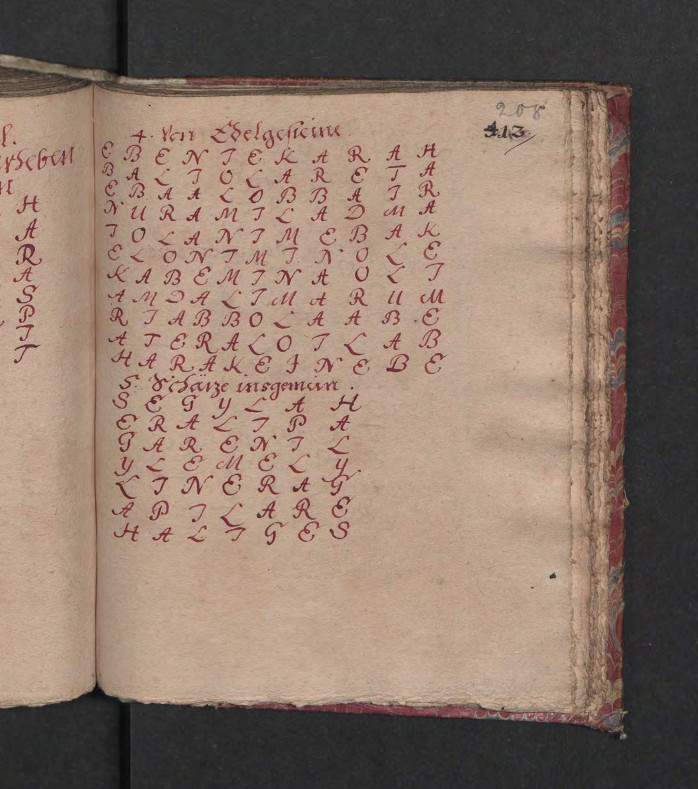 l.
n
H
A
R
A
S
P
I
I
208
413
4. Von Edelgesteine
E B E N I E K A R A H
B A L I O L A R E I A
E B A A L O B B A I R
N U R A M I L A D M A
I O L A N I M E B A K
E L O N I M I N O L E
K A B E M I N A O L I
A M D A L I M A R U M
R I A B B O L A A B E
A I E R A L O I L A B
H A R A K E I N E B E
5. Schätze insgemein.
S E G Y L A H
E R A L I P A
G A R E N I L
Y L E M E L Y
L I N E R A G
A P I L A R E
H A L I G E S